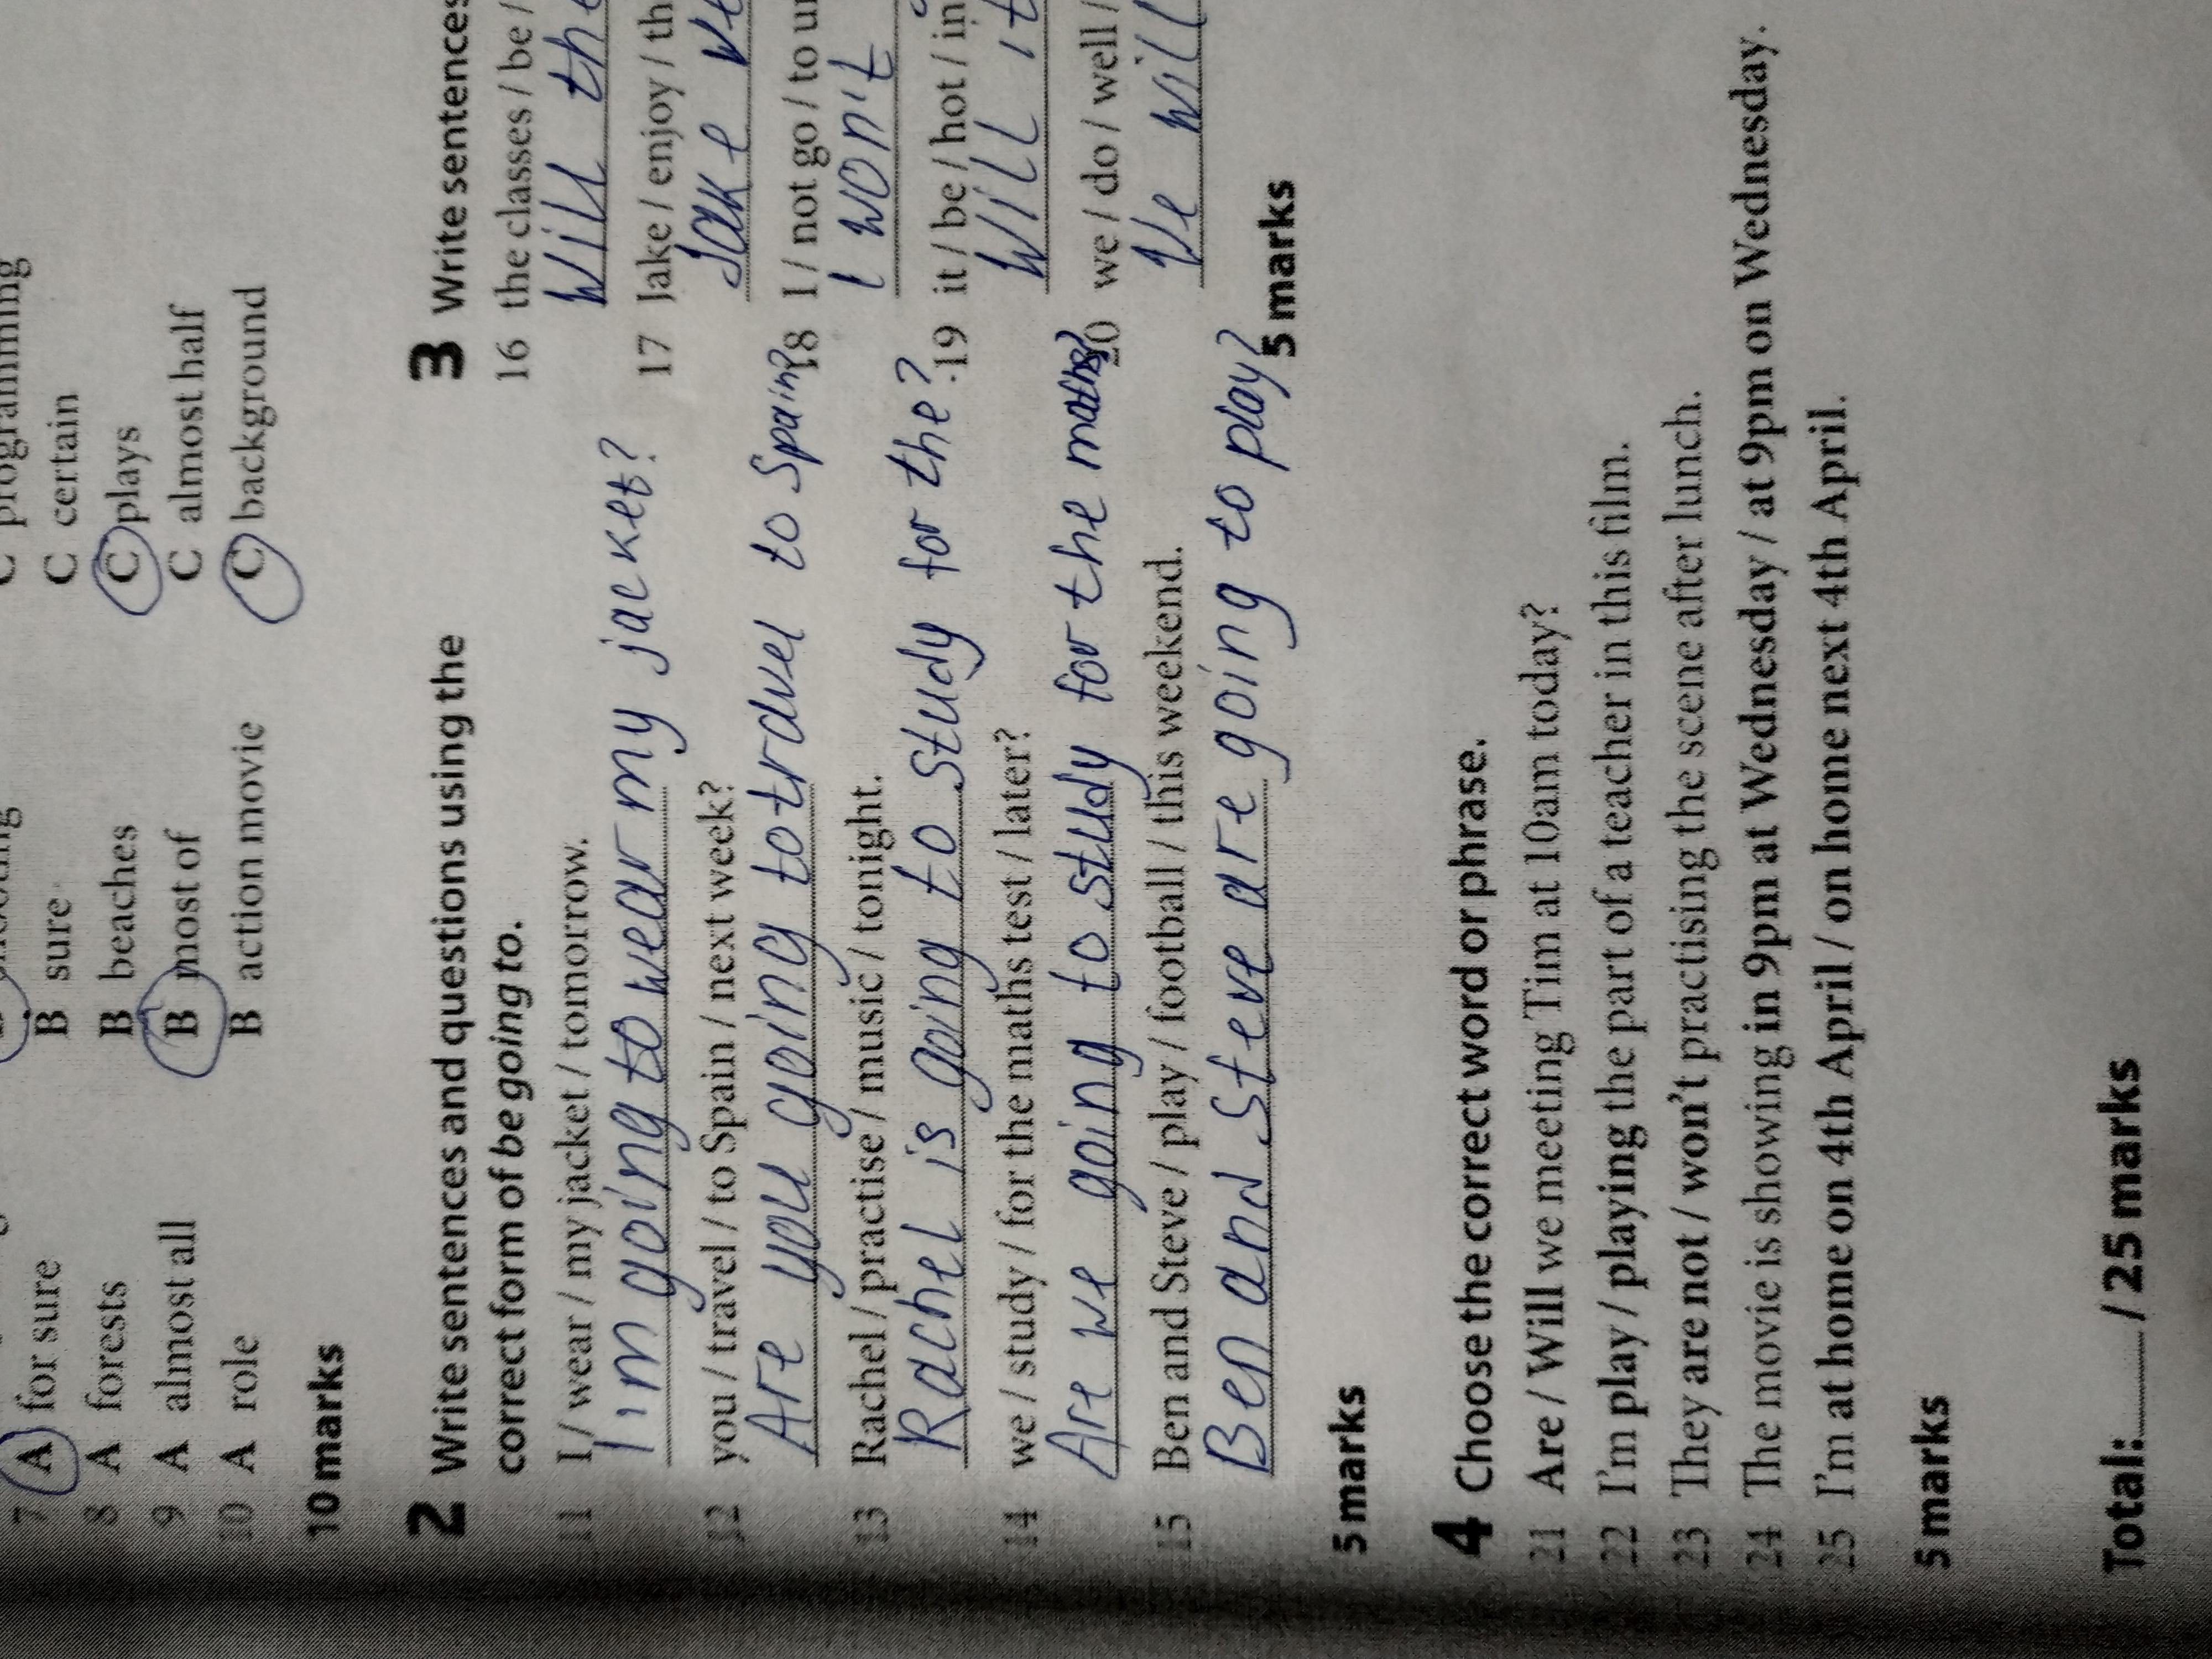 programming
7 A for sure B sure C certain
8 A forests B beaches C plays
9 A almost all B most of C almost half
10 A role B action movie C background
10 marks
2 Write sentences and questions using the
correct form of be going to.
11 I / wear / my jacket / tomorrow.
I'm going to wear my jacket?
12 you / travel / to Spain / next week?
Are you going to travel to Spain?
13 Rachel / practise / music / tonight.
Rachel is going to study for the?
14 we / study / for the maths test / later?
Are we going to study for the maths?
15 Ben and Steve / play / football / this weekend.
Ben and Steve are going to play?
5 marks
3 Write sentences
16 the classes / be /
Will the
17 Jake / enjoy / th
Jake
18 I / not go / to
I won't
19 it / be / hot / in
Will it
20 we / do / well /
We will
5 marks
4 Choose the correct word or phrase.
21 Are / Will we meeting Tim at 10am today?
22 I'm play / playing the part of a teacher in this film.
23 They are not / won't practising the scene after lunch.
24 The movie is showing in 9pm at Wednesday / at 9pm on Wednesday.
25 I'm at home on 4th April / on home next 4th April.
5 marks
Total: / 25 marks